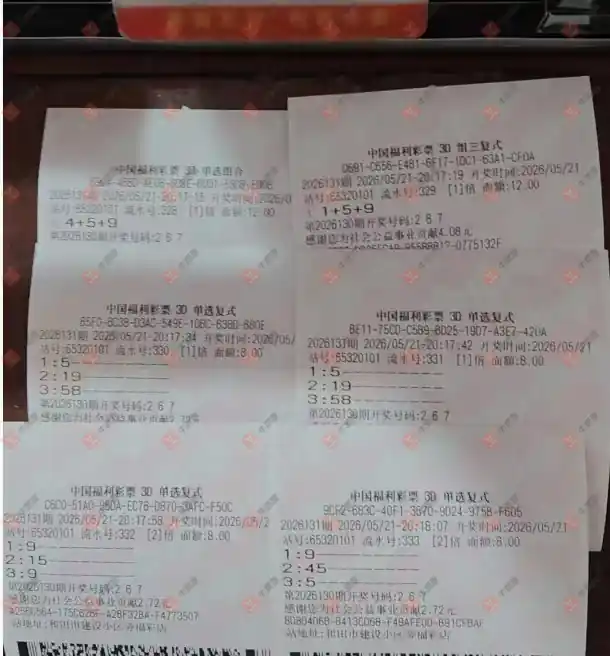 中国福利彩票 3D 单选组合
2026131期 2026/05/21-20:17:13 开奖时间:2026/0
站号:65320101 流水号:328 [1]倍 面额:12.00
4+5+9
第2026130期开奖号码:2 6 7
中国福利彩票 3D 组三复式
2026131期 2026/05/21-20:17:19 开奖时间:2026/05/21
站号:65320101 流水号:329 [1]倍 面额:12.00
1+5+9
第2026130期开奖号码:2 6 7
感谢您为社会公益事业贡献4.08元
中国福利彩票 3D 单选复式
2026131期 2026/05/21-20:17:34 开奖时间:2026/05/
站号:65320101 流水号:330 [1]倍 面额:8.00
1:5
2:19
3:58
第2026130期开奖号码:2 6 7
中国福利彩票 3D 单选复式
BE11-75CD-C5B9-BD25-19D7-A3E7-420A
2026131期 2026/05/21-20:17:42 开奖时间:2026/05/21
站号:65320101 流水号:331 [1]倍 面额:8.00
1:5
2:19
3:58
第2026130期开奖号码:2 6 7
中国福利彩票 3D 单选复式
2026131期 2026/05/21-20:17:58 开奖时间:2026/05/2
站号:65320101 流水号:332 [2]倍 面额:8.00
1:9
2:15
3:9
第2026130期开奖号码:2 6 7
感谢您为社会公益事业贡献2.72元
站地址:和田市建设小区旁福彩店
中国福利彩票 3D 单选复式
9CF2-683C-40F1-3870-9024-975B-F605
2026131期 2026/05/21-20:18:07 开奖时间:2026/05/21
站号:65320101 流水号:333 [2]倍 面额:8.00
1:9
2:45
3:5
第2026130期开奖号码:2 6 7
感谢您为社会公益事业贡献2.72元
站地址:和田市建设小区旁福彩店